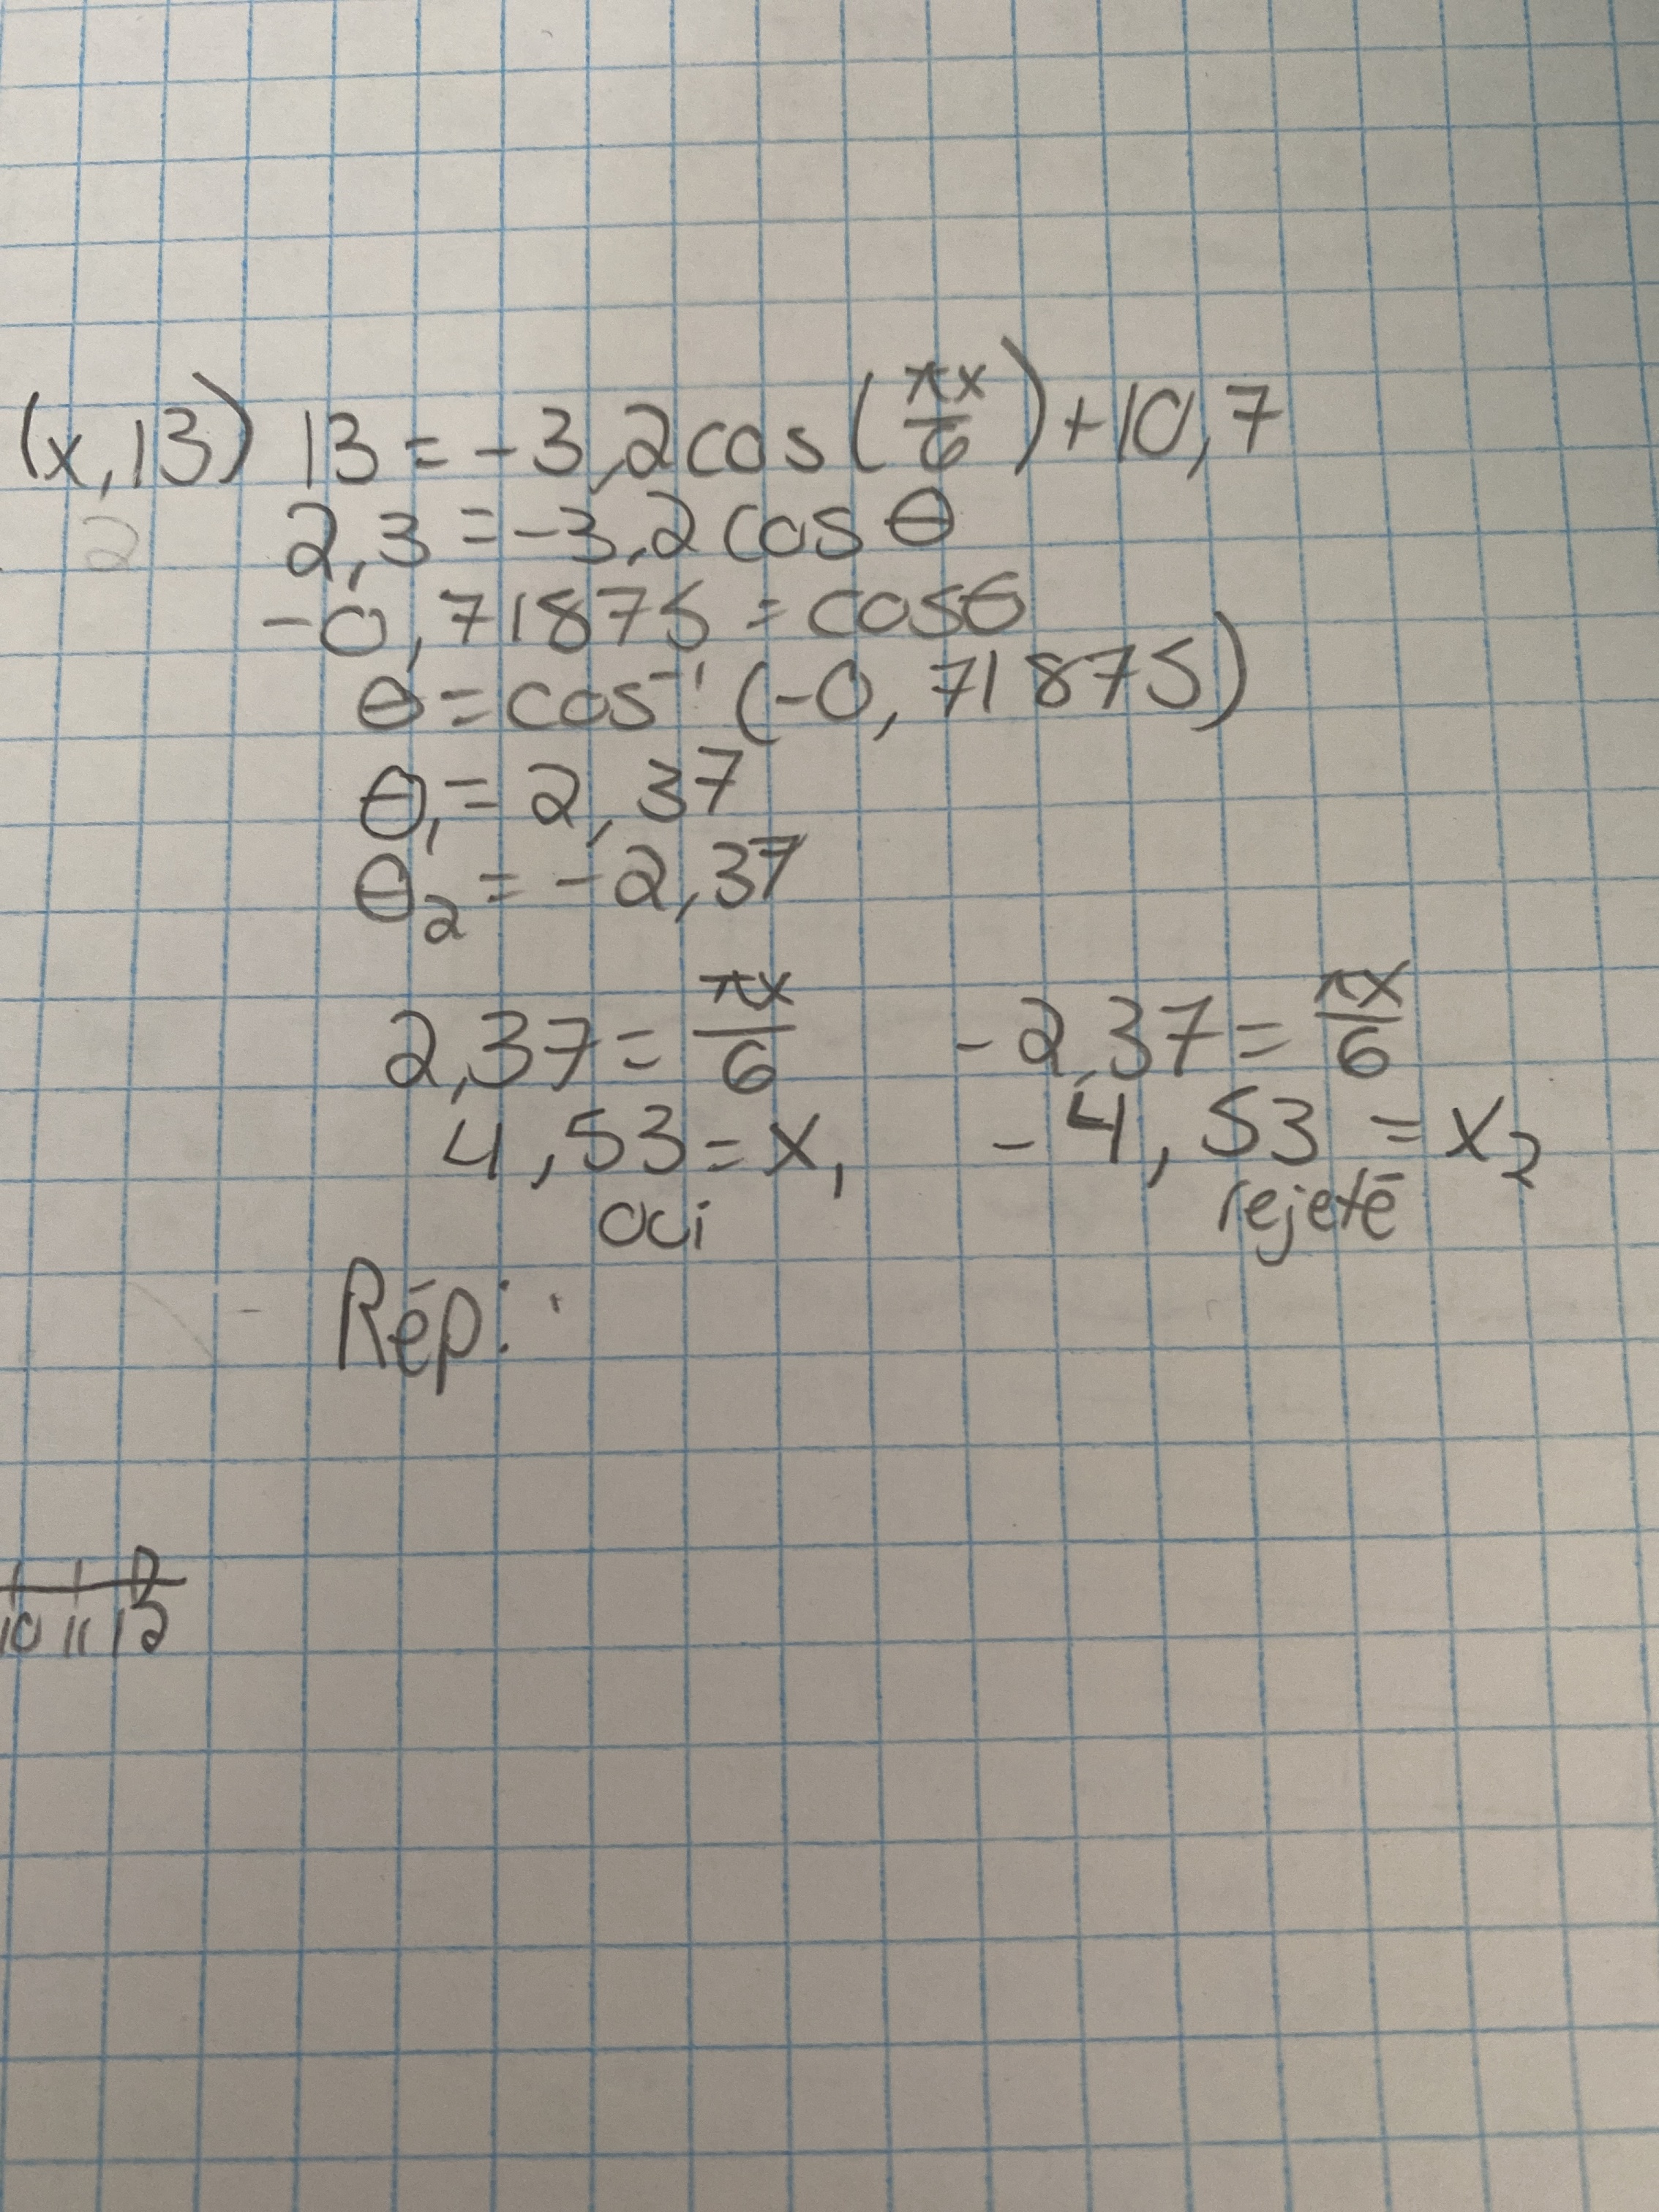 (x,13) 13 = -3,2cos(πx/6)+10,7
2 2,3 = -3,2cosθ
-0,71875 = cosθ
θ = cos⁻¹(-0,71875)
θ₁ = 2,37
θ₂ = -2,37
2,37 = πx/6 -2,37 = πx/6
4,53 = x₁ -4,53 = x₂
oui rejeté
Rép:
10 11 12